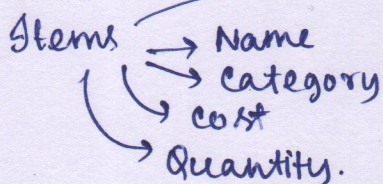 Items Name
Category
Cost
Quantity.